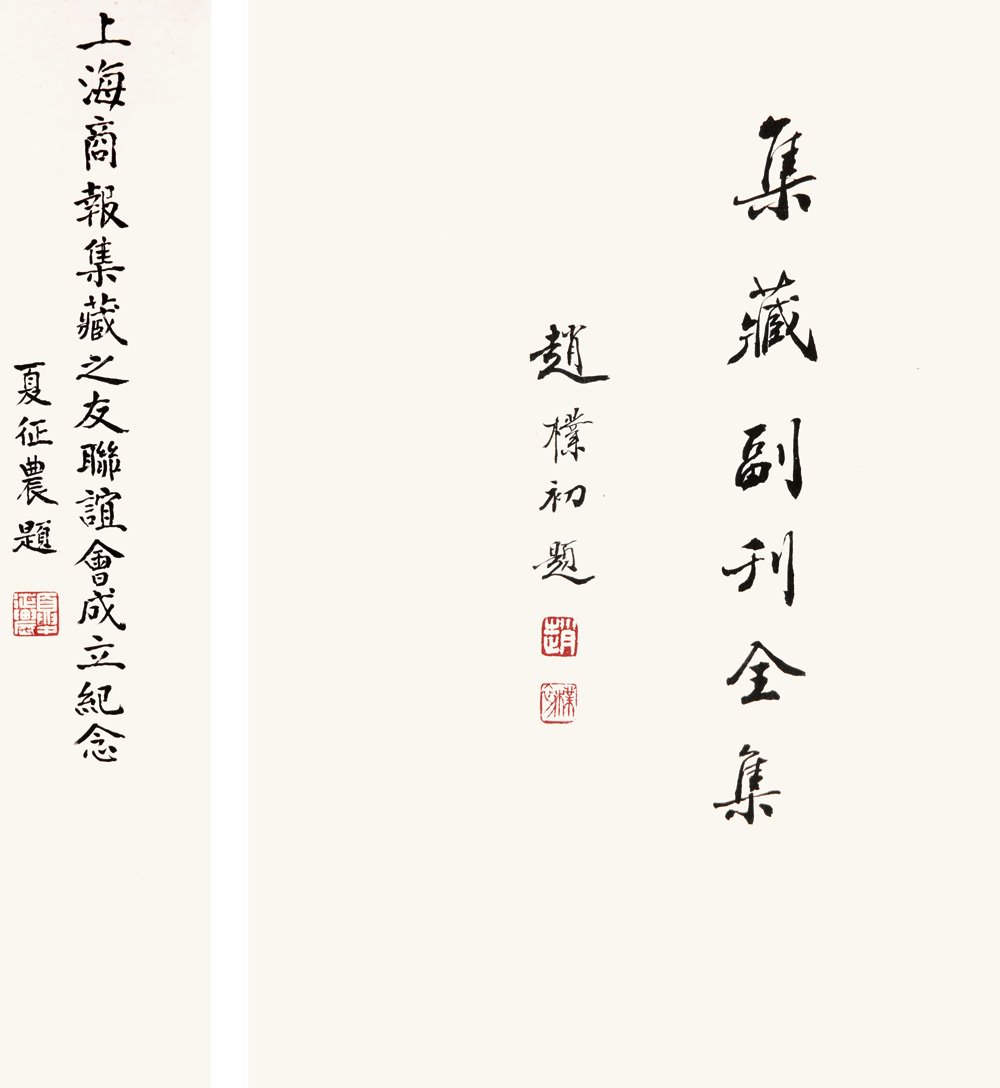 集藏副刊全集
趙樸初題
趙
樸初
上海商報集藏之友聯誼會成立紀念
夏征農題